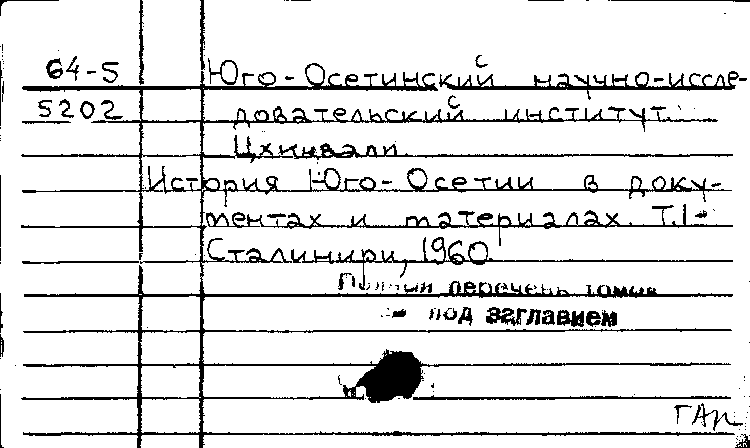 64-5 Юго-Осетинский научно-иссле-
5202 довательский институт.
Цхинвали.
История Юго-Осетии в доку-
ментах и материалах. Т.1-
Сталинири, 1960
Полный перечень томов
под заглавием